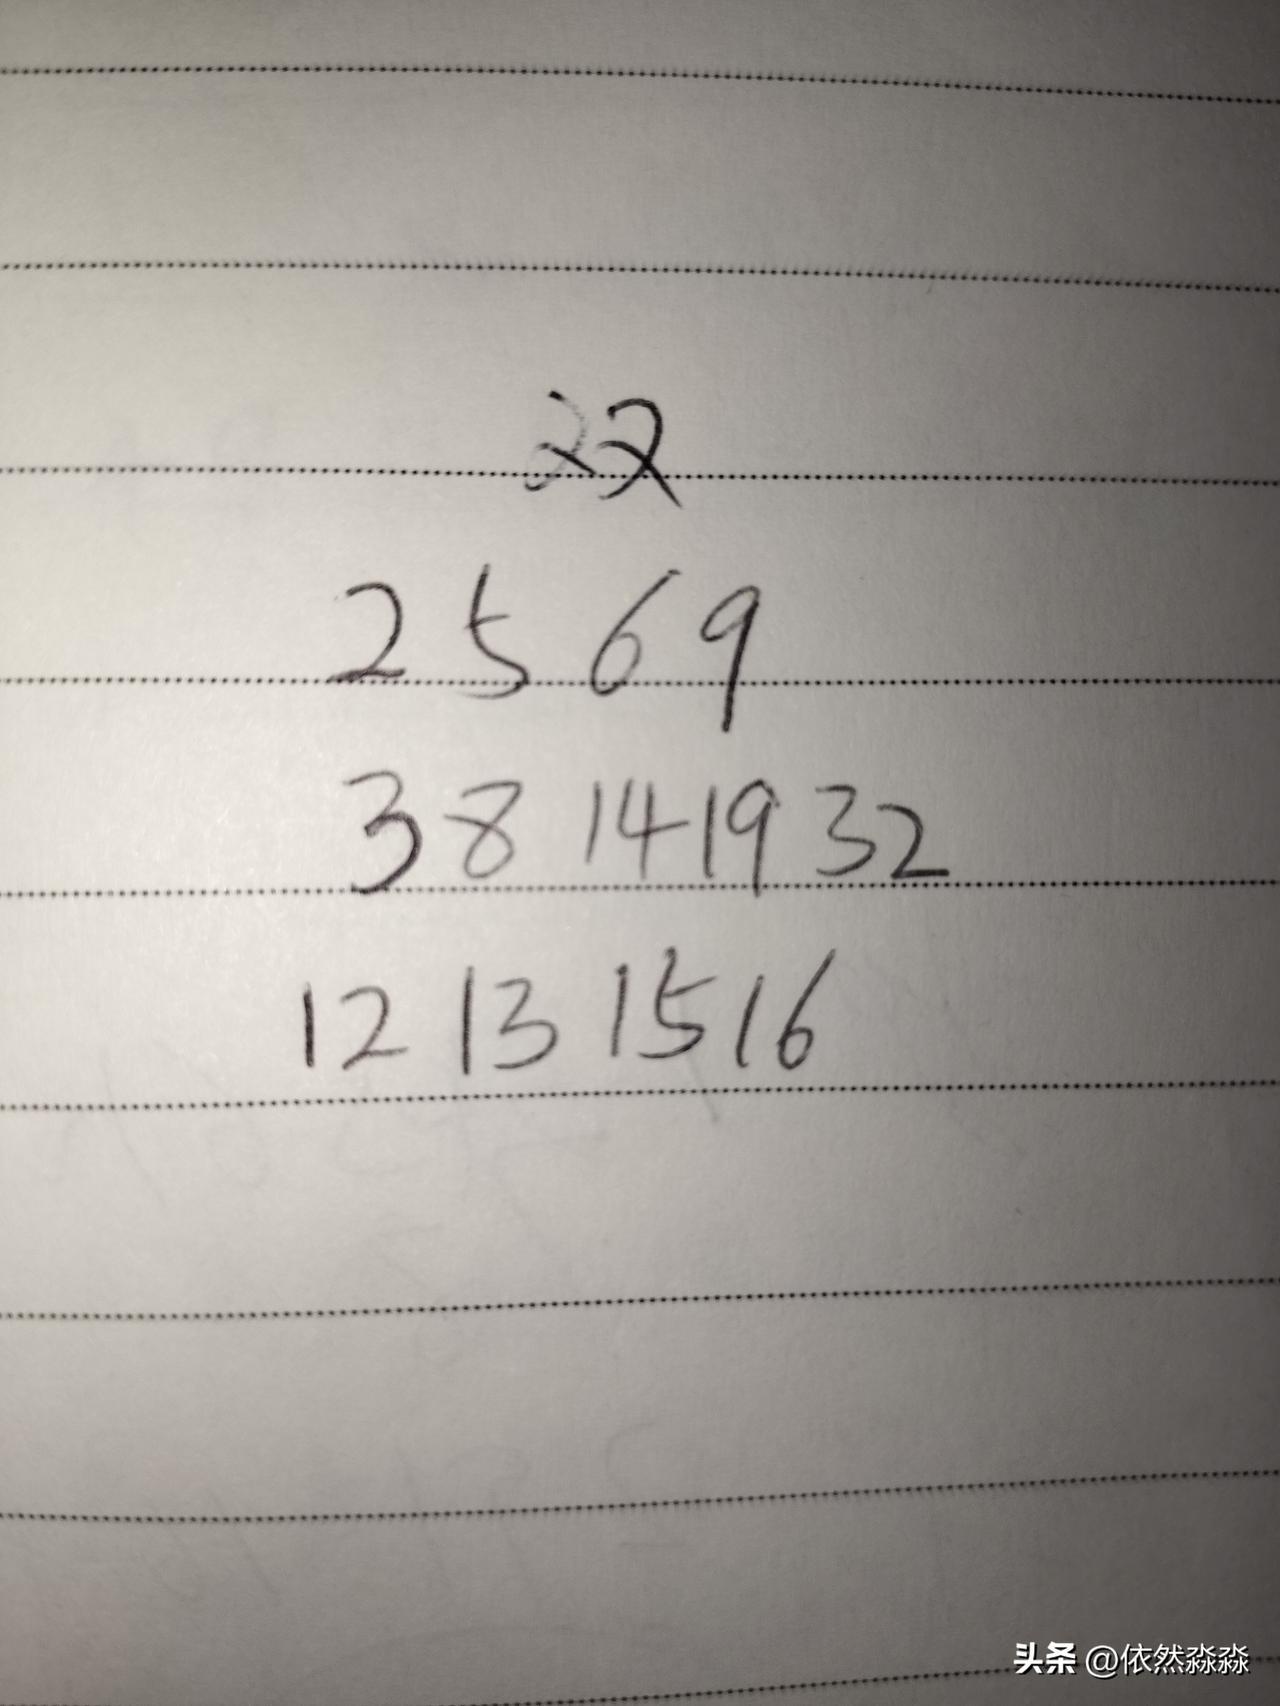 22
2 5 6 9
3 8 14 19 32
12 13 15 16
头条 @依然淼淼